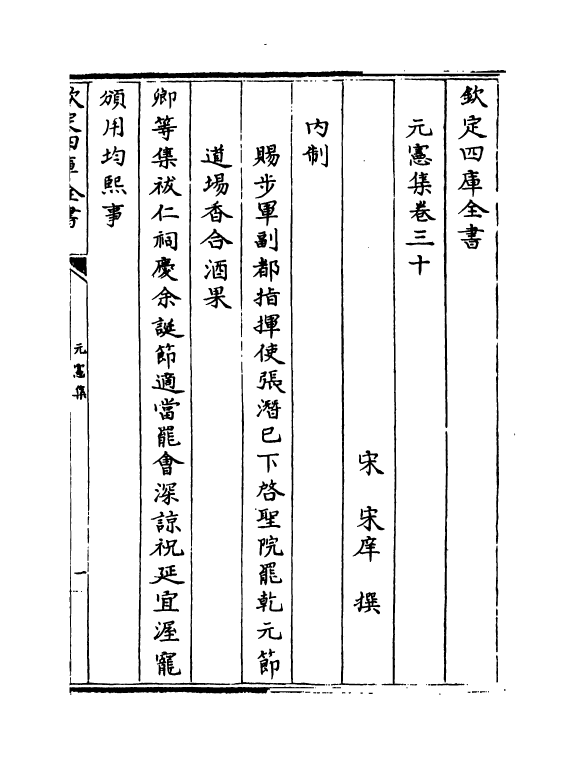 欽定四庫全書
元憲集卷三十
宋 宋庠 撰
內制
賜步軍副都指揮使張潛已下啓聖院罷乾元節
道場香合酒果
卿等集祓仁祠慶余誕節適當罷會深諒祝延宜渥寵
頒用均熙事
欽定四庫全書
元憲集
一